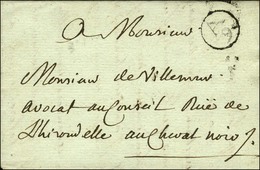 A Monsieur
Monsieur de Villemur
avocat au Conseil Rue de
Lhirondelle au cheval noir